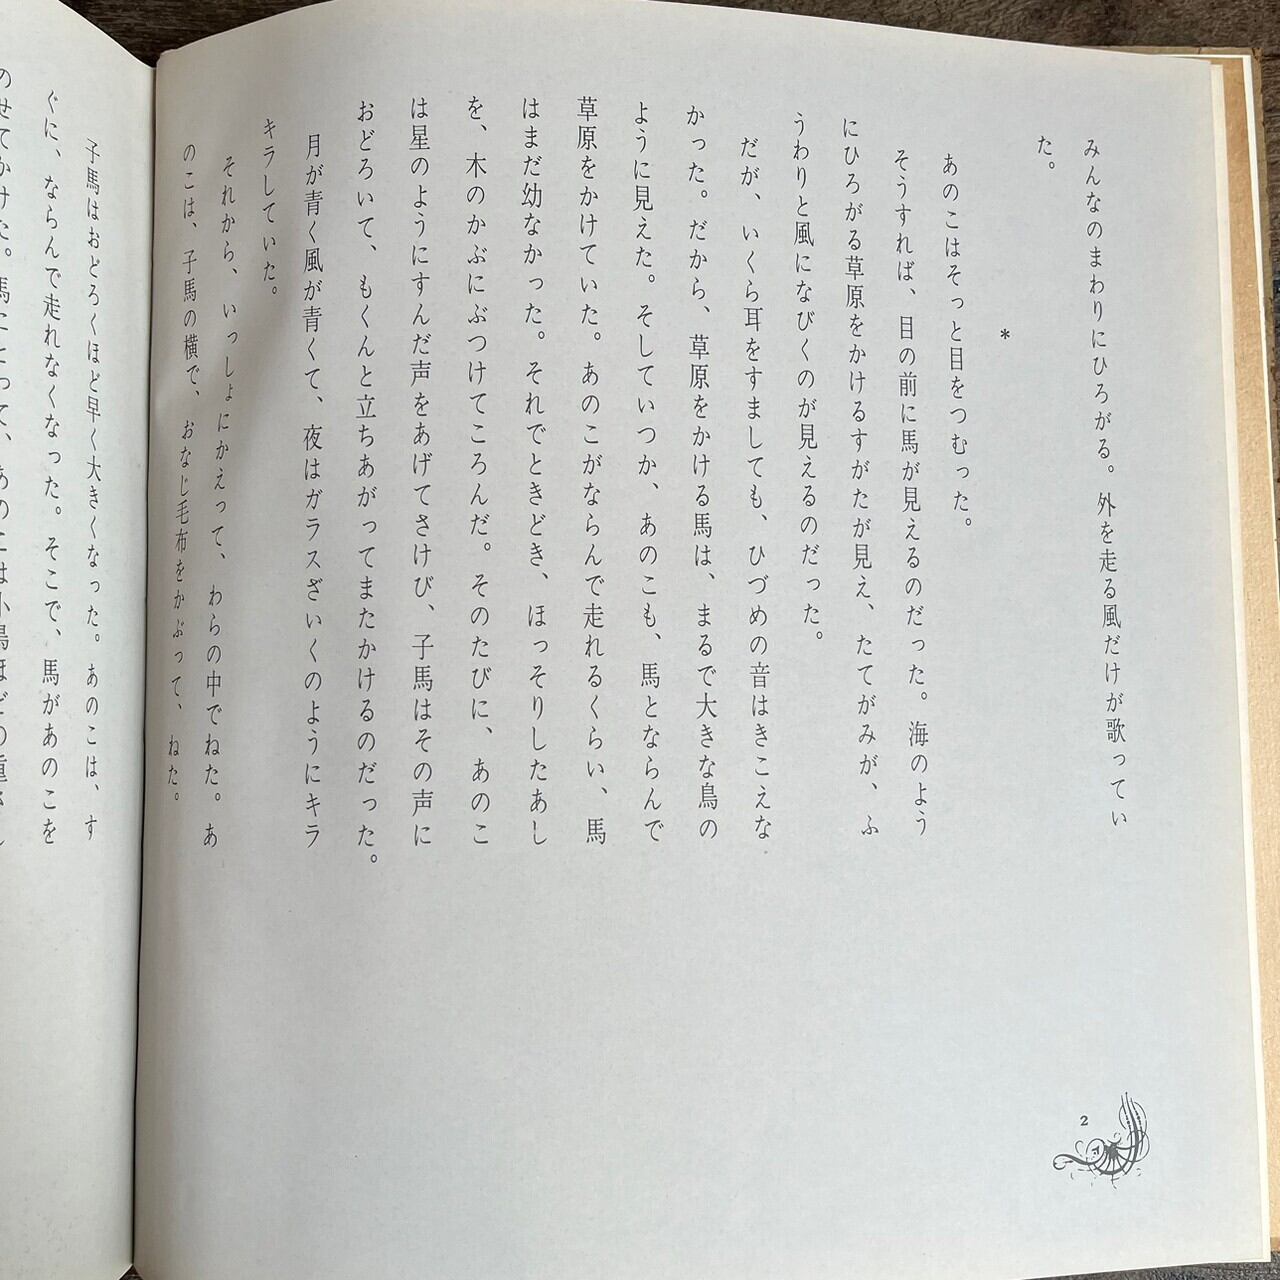 みんなのまわりにひろがる。外を走る風だけが歌ってい
た。
*
あのこはそっと目をつむった。
そうすれば、目の前に馬が見えるのだった。海のよう
にひろがる草原をかけるすがたが見え、たてがみが、ふ
うわりと風になびくのが見えるのだった。
だが、いくら耳をすましても、ひづめの音はきこえな
かった。だから、草原をかける馬は、まるで大きな鳥の
ように見えた。そしていつか、あのこも、馬とならんで
草原をかけていた。あのこがならんで走れるくらい、馬
はまだ幼なかった。それでときどき、ほっそりしたあし
を、木のかぶにぶつけてころんだ。そのたびに、あのこ
は星のようにすんだ声をあげてさけび、子馬はその声に
おどろいて、もくんと立ちあがってまたかけるのだった。
月が青く風が青くて、夜はガラスざいくのようにキラ
キラしていた。
それから、いっしょにかえって、わらの中でねた。あ
のこは、子馬の横で、おなじ毛布をかぶって、ねた。
2
子馬はおどろくほど早く大きくなった。あのこは、す
ぐに、ならんで走れなくなった。そこで、馬があのこを
のせてかけた。馬にとって、あのこは小鳥ほどの重さし